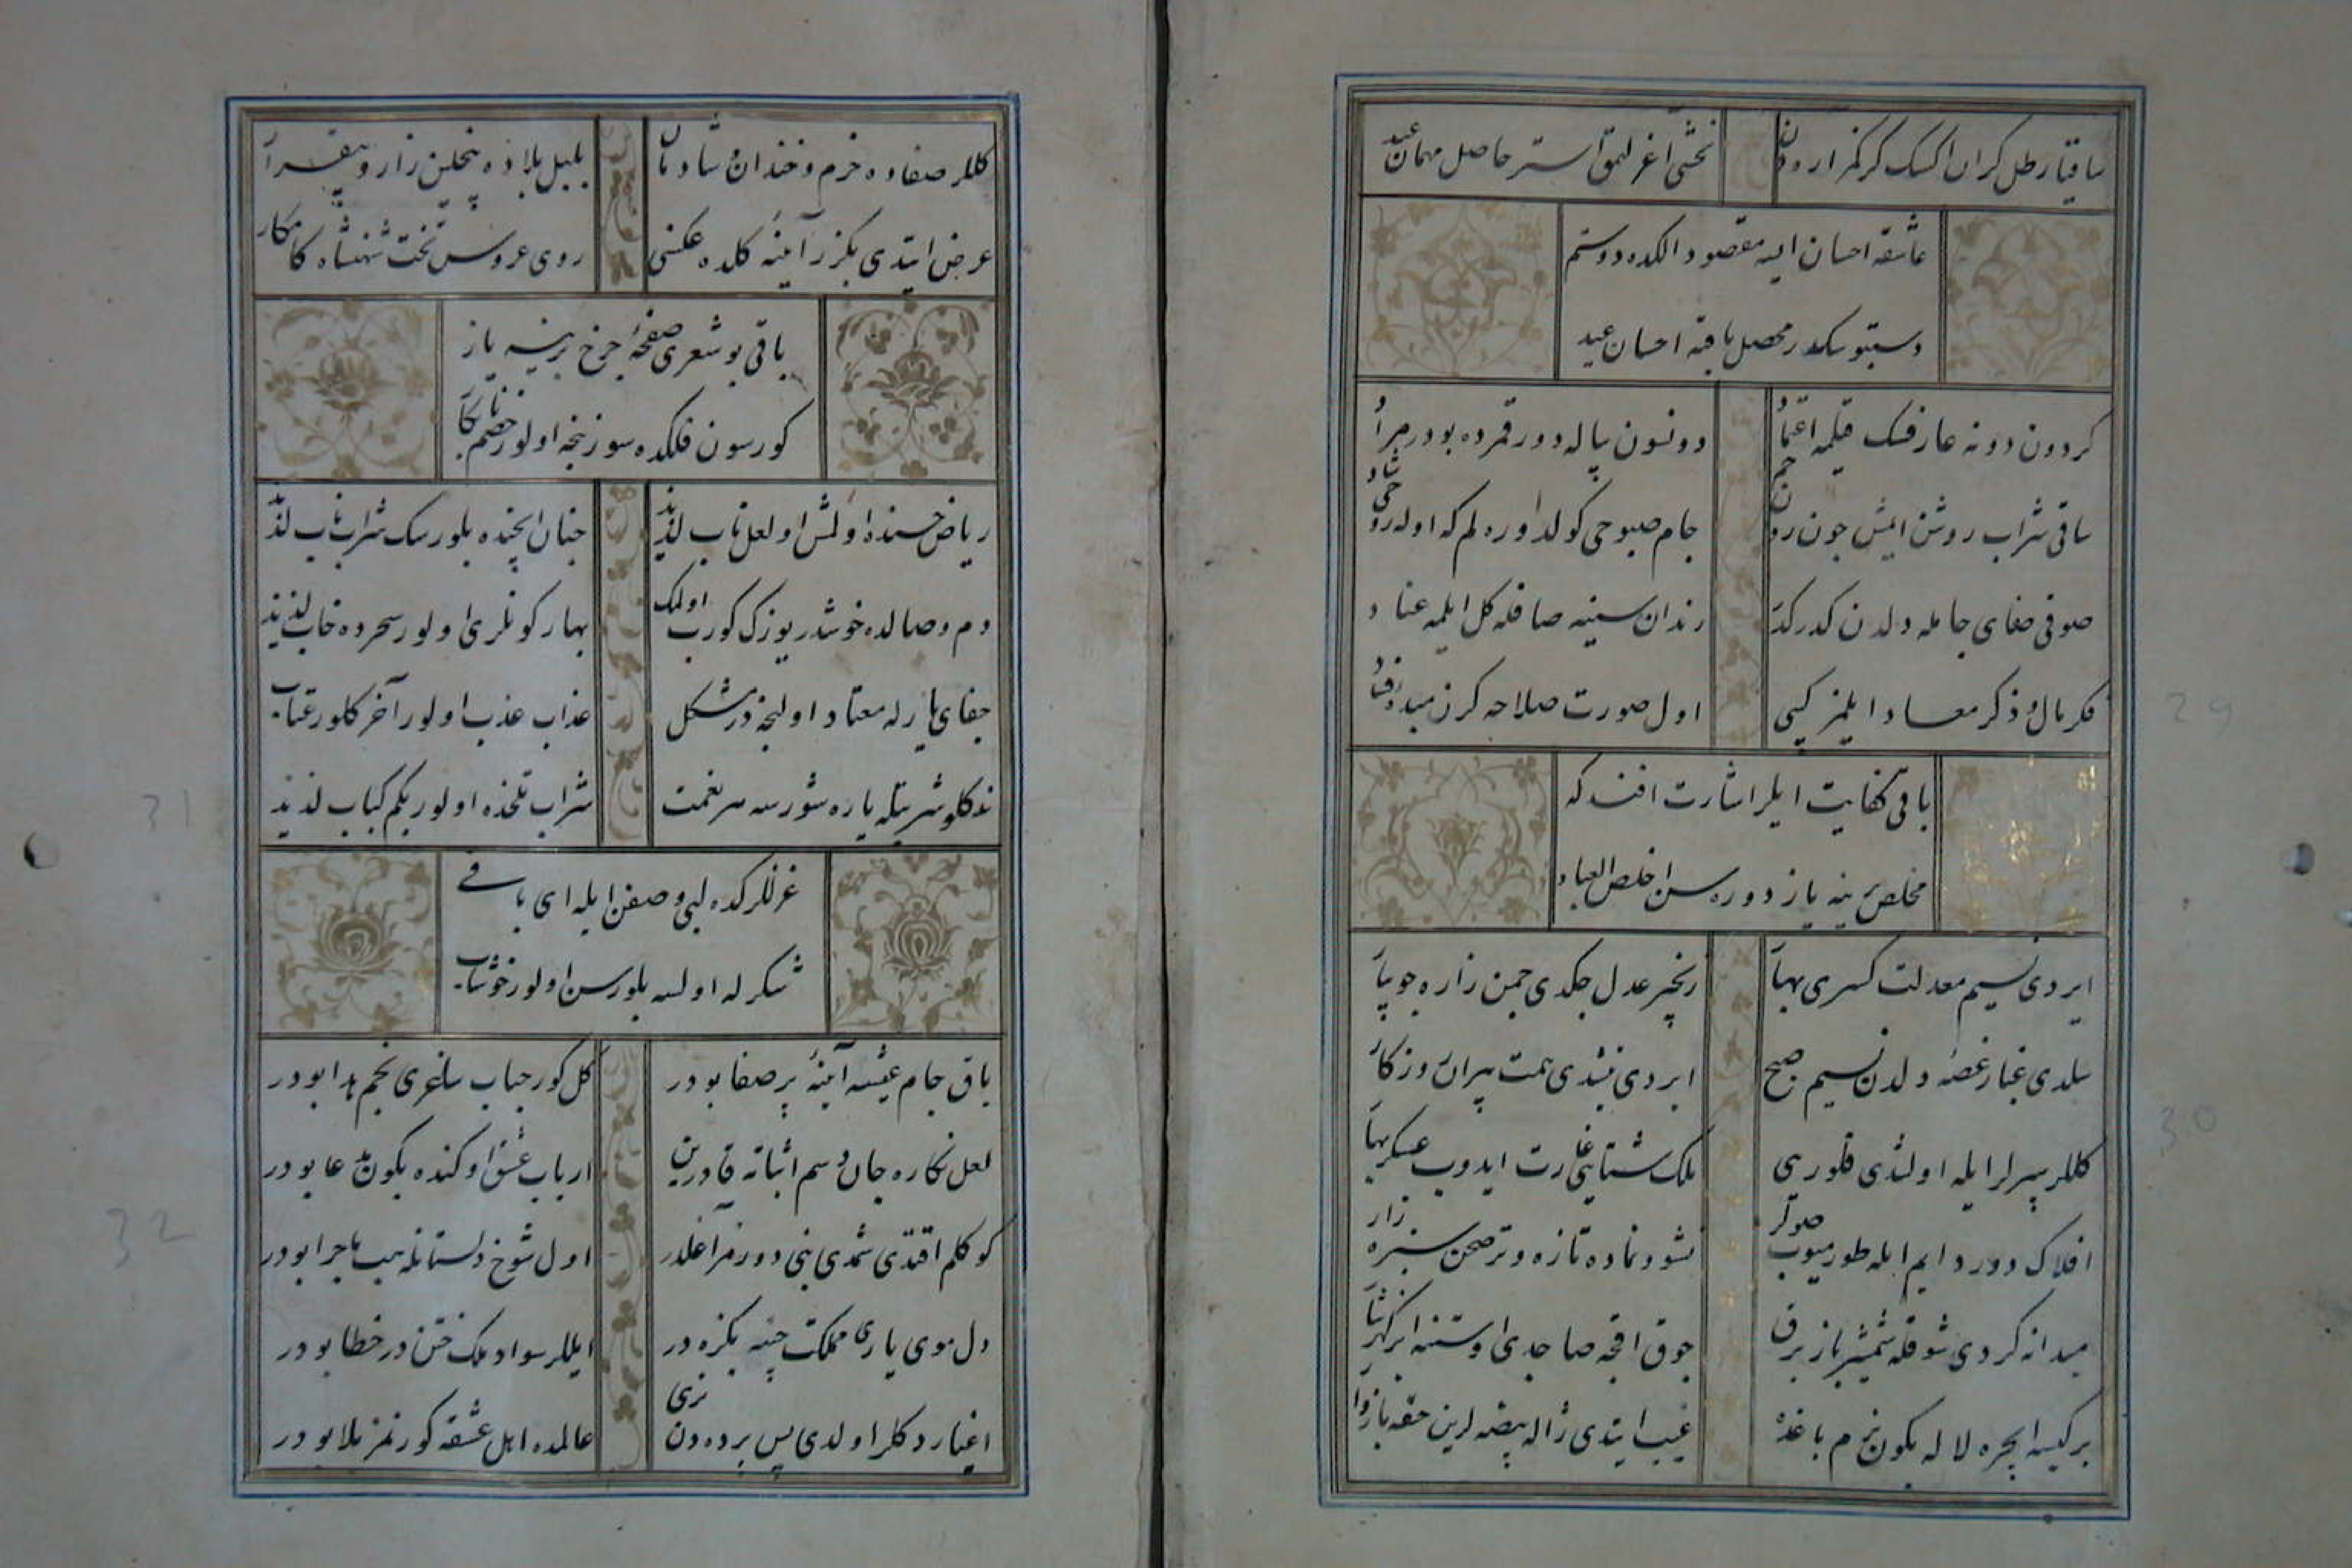 ساقیا رطل کران اکسک کرکمز اره دن
نخشی اغرلتمق استر حاصل مهمان عید
عاشقه احسان ایسه مقصود الکده دوستم
دستبوسکدر محصل باقیه احسان عید
کردون دونه عارفسک قیلمه اعتماد
دونسون پیاله دور قمرده بودر مراد
ساقی شراب روشن ایمش چون روان جم
جام صبوحی کولدر اوره لم که اوله روحی شاد
صوفی صفای جامله دلدن کدر کدر
رندان سینه صافله کل ایلمه عناد
فکر مال و ذکر معاد ایلمز کیبی
اول صورت صلاحه کرن
باقی کفایت ایلر اشارت افند که
مخلصلرینه یاز دوره سن اخلص العباد
ایردی نسیم معدلت کسری بهار
زنجیر عدل چکدی چمن زاره جویبار
سلدی غبار غصه دلدن نسیم صبح
ایردی یتشدی همت پیران وزکار
کللر سپرلر ایله اولشدی قلوریی
ملک شتایی غارت ایدوب عسکر بهار
افلاک دور دایم ایله طورمیوب صولر
نشو و نماده تازه و تر صحن سبزه زار
میدانه کردی شوقله شمشیرباز برق
چوق اقچه صاچدی اوستنه ابر کهر نثار
بر کیسه ایچره لاله بکون بزم باغده
غیب ایتدی ژاله بیضه لرین حقه باز وار
کللر صفاده خرم و خندان و شادمان
بلبل بلاده نچلین زار و بیقرار
عرض ایتدی بکزر آینه کلده عکسنی
روی عروس تخت شهنشاه کامکار
باقی بو شعری صفحه چرخ برینه یاز
کورسون فلکده سوز نیجه اولور خصم نابکار
ریاض حسنده اولمش او لعل ناب لذیذ
جنان ایچنده بلورسک شراب ناب لذیذ
دم وصالده خوشدر یوزک کورب اولمک
بهار کونلری اولور سحرده خاب لذیذ
جفای یارله معتاد اولیجه در مشکل
عذاب عذب اولور آخر کلور عتاب
ندکلو شربتله یاره شورسه سر نعمت
شراب تلخده اولور بکم کباب لذیذ
غزللرکده لبی وصفن ایله ای باقی
شکرله اولسه بلورسن اولور خوشاب
باق جام عیشه آینه پر صفا بودر
کل کور حباب ساغری نجم هدا بودر
لعل نکاره جان دسم اثباته قادرین
ارباب عشق اوکنده بکون مدعا بودر
کوکلم اقتدی شمدی بنی دورمز اغلدر
اول شوخ دلستانله هب ماجرا بودر
دل موی یاری مملکت چینه بکزه در
ایللر سواد ملک ختن در خطا بودر
اغیار دکلر اولدی پس پرده دن نری
عالمده اهل عشقه کورنمز بلا بودر